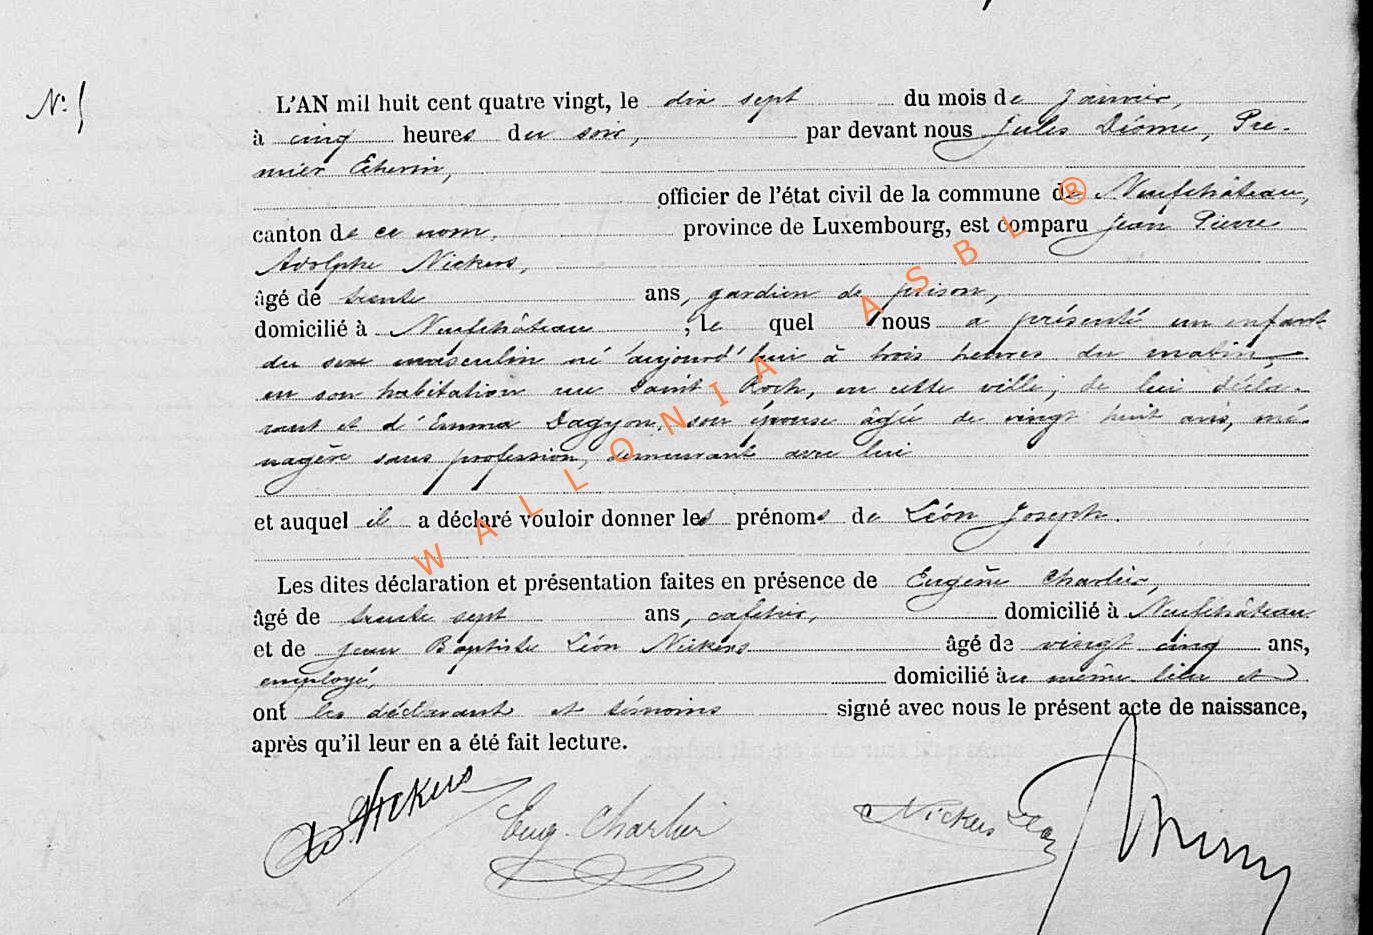 N° 5
L'AN mil huit cent quatre vingt, le dix sept du mois de Janvier,
à cinq heures du soir, par devant nous Jules Diôme, Pre-
mier Echevin,
officier de l'état civil de la commune de Neufchâteau,
canton de ce nom, province de Luxembourg, est comparu Jean Pierre
Adolphe Nickers,
âgé de trente ans, gardien de prison,
domicilié à Neufchâteau, lequel nous a présenté un enfant
du sexe masculin né aujourd'hui à trois heures du matin,
en son habitation rue Saint Roch, en cette ville, de lui décla-
rant et d'Emma Dagyon, son épouse âgée de vingt huit ans, mé-
nagère sans profession, demeurant avec lui
et auquel il a déclaré vouloir donner les prénoms de Léon Joseph.
Les dites déclaration et présentation faites en présence de Eugène Charlier,
âgé de trente sept ans, cafetier, domicilié à Neufchâteau
et de Jean Baptiste Léon Nickers âgé de vingt cinq ans,
employé, domicilié au même lieu et
ont les déclarant et témoins signé avec nous le présent acte de naissance,
après qu'il leur en a été fait lecture.
Nickers Eug. Charlier Nickers Léon
WALLONIA ASBL ®